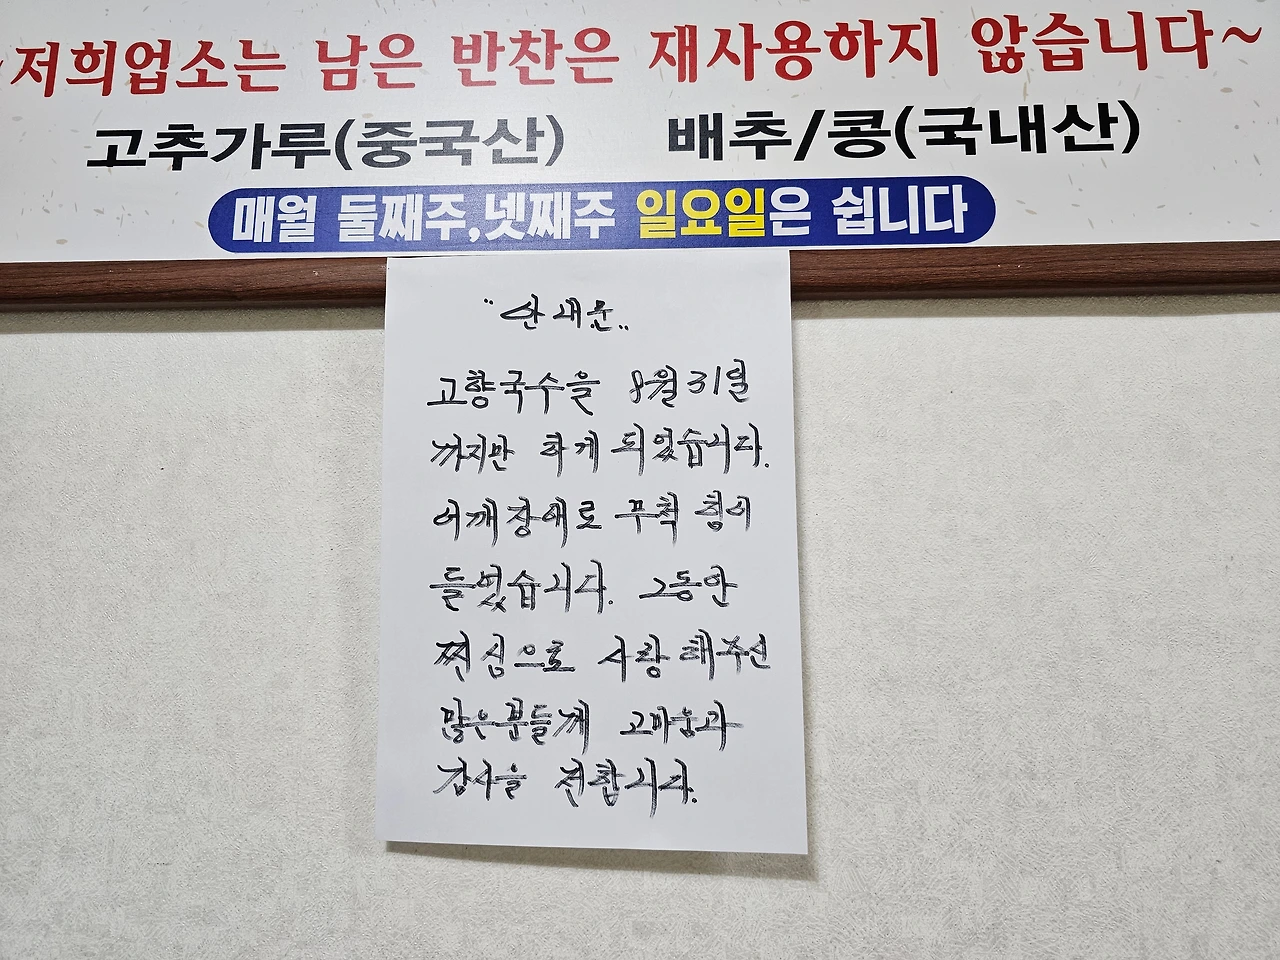 ~저희업소는 남은 반찬은 재사용하지 않습니다~
고추가루(중국산) 배추/콩(국내산)
매월 둘째주,넷째주 일요일은 쉽니다
"안내문"
고향국수을 8월31일
까지만 하게 되었습니다.
어깨장애로 무척 힘이
들었습니다. 그동안
찐심으로 사랑해주신
많은분들께 고마움과
감사을 전합니다.